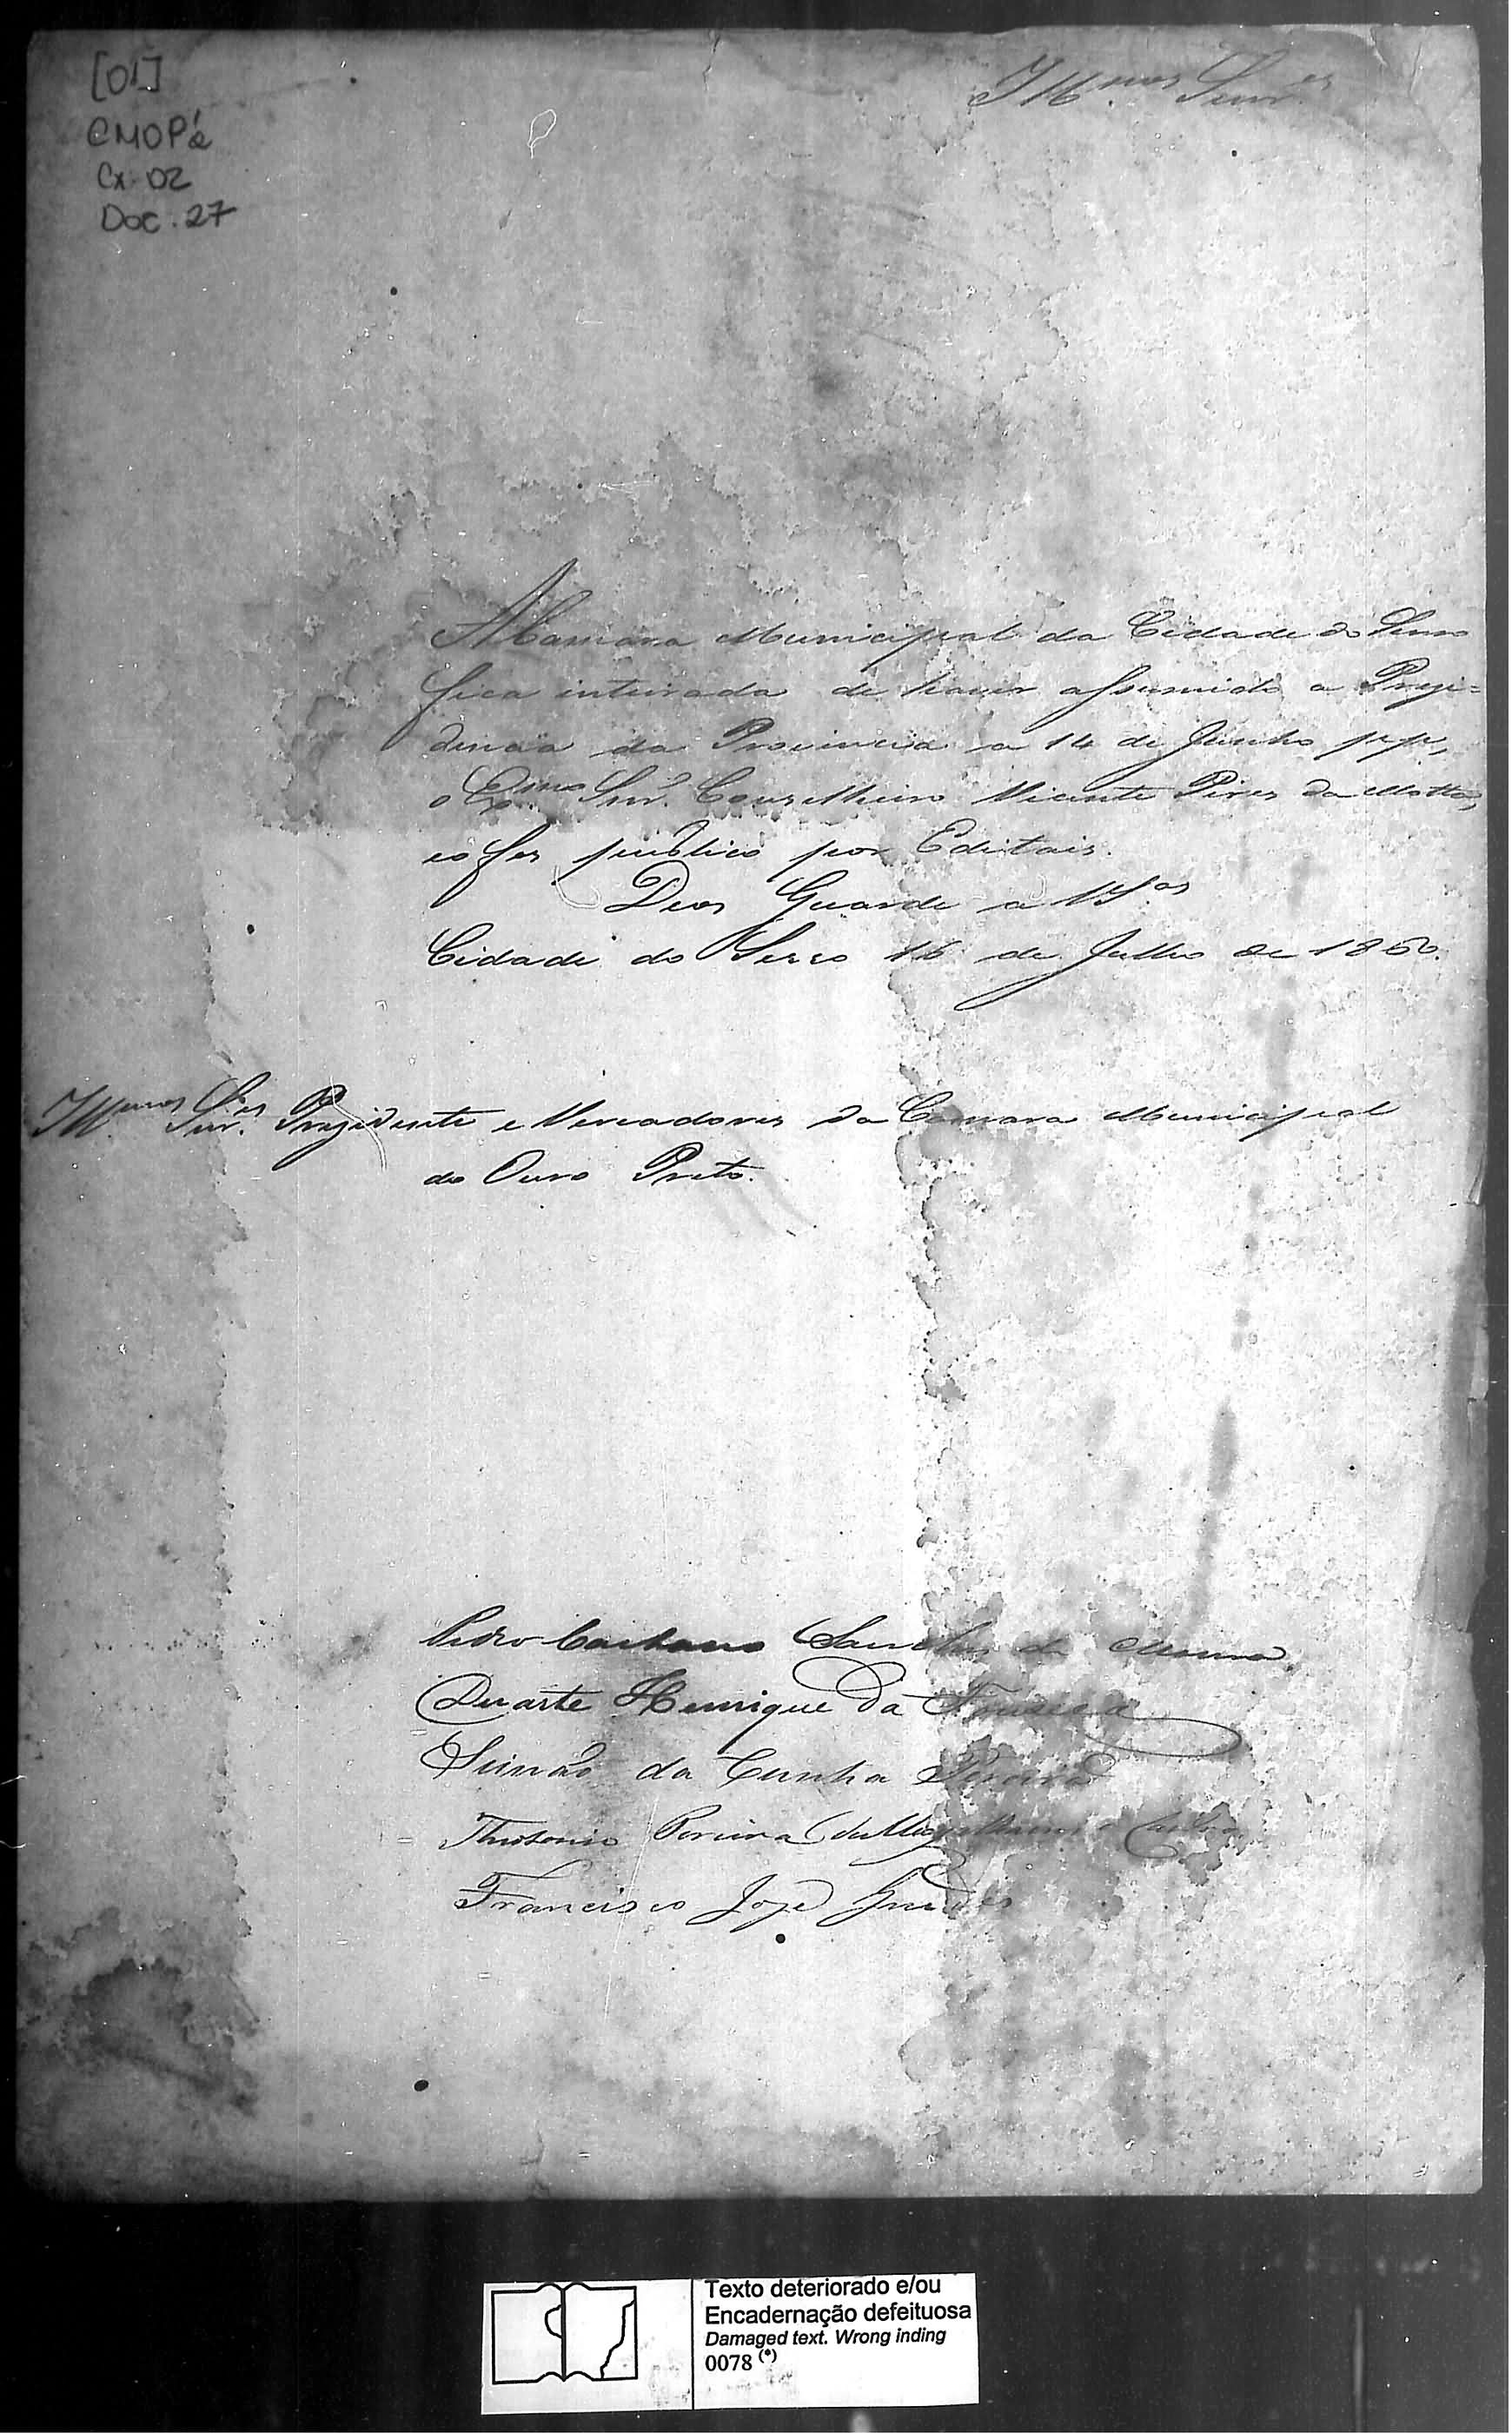 [01]
CMOP
Cx. 02
Doc. 27
Ill.mos Snr.es
A Camara Municipal da Cidade do Serro
fica inteirada de haver assumido a Prezi=
dencia da Provincia a 14 de Junho p.p.,
o Ex.mo Snr. Conselheiro Vicente Pires da Motta,
e o fes publico por Editais.
Deos Guarde a VS.as
Cidade do Serro 16 de Julho de 1860.
Ill.mos Snr.es Prezidente e Vereadores da Camara Municipal
do Ouro Preto.
Pedro Caetano Sanches de Moura
Duarte Henrique da Fonseca
Simão da Cunha Pereira
Theotonio Pereira de Magalhaens e Castro
Francisco Jose Guedes
Texto deteriorado e/ou
Encadernação defeituosa
Damaged text. Wrong inding
0078 (*)